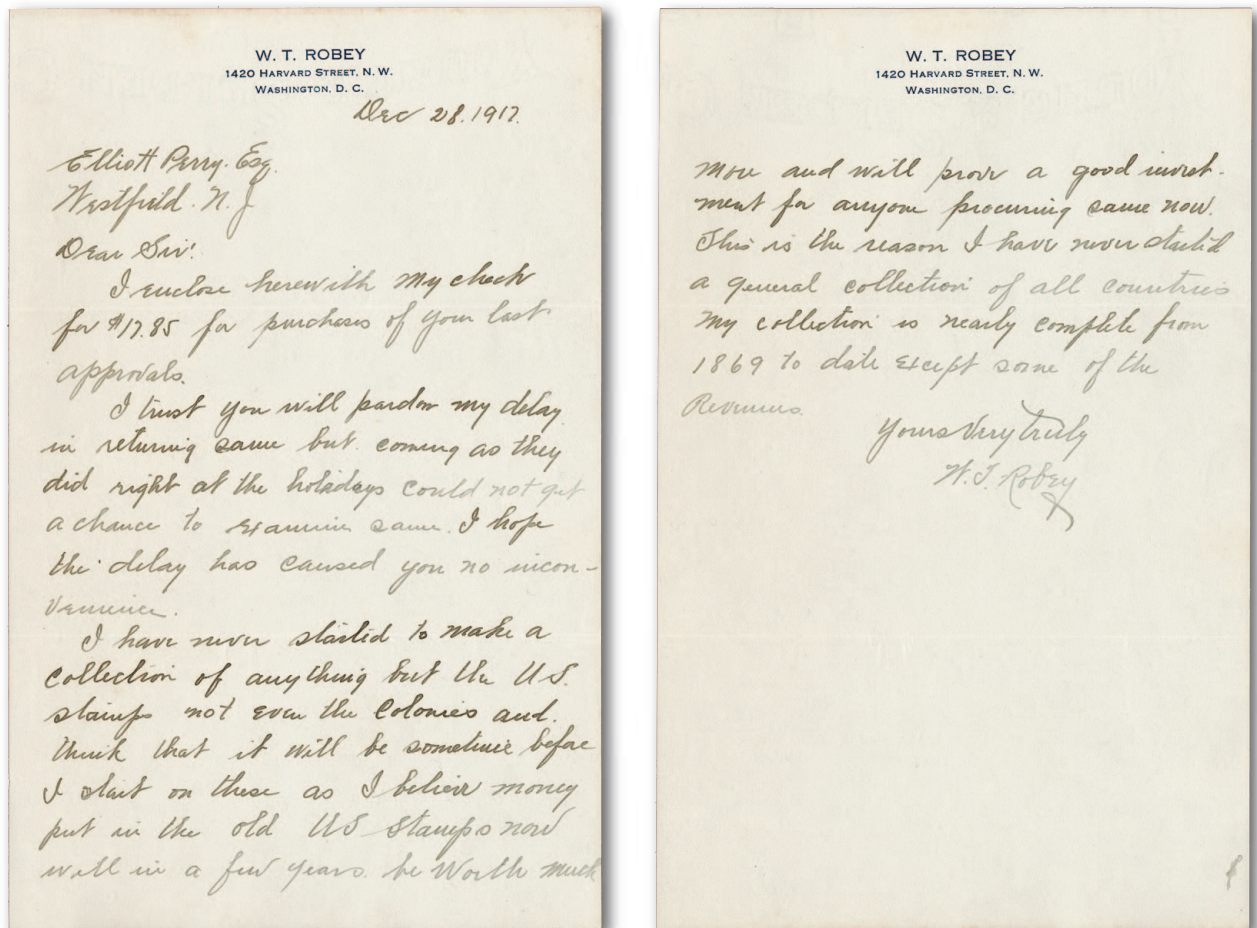 W. T. ROBEY
1420 HARVARD STREET, N. W.
WASHINGTON, D. C.
Dec 28. 1917.
Elliott Perry. Esq.
Westfield. N. J
Dear Sir:
I enclose herewith my check
for $17.85 for purchases of your last
approvals.
I trust you will pardon my delay
in returning same but coming as they
did right at the holidays could not get
a chance to examine same. I hope
the delay has caused you no incon-
venience.
I have never started to make a
collection of anything but the U.S.
stamps not even the Colonies and.
think that it will be sometime before
I start on these as I believe money
put in the old US Stamps now
will in a few years. be Worth much
W. T. ROBEY
1420 HARVARD STREET, N. W.
WASHINGTON, D. C.
more and will prove a good invest-
ment for anyone procuring same now.
This is the reason I have never started
a general collection of all countries
My collection is nearly complete from
1869 to date except some of the
Revenues.
Yours Very Truly
W. T. Robey